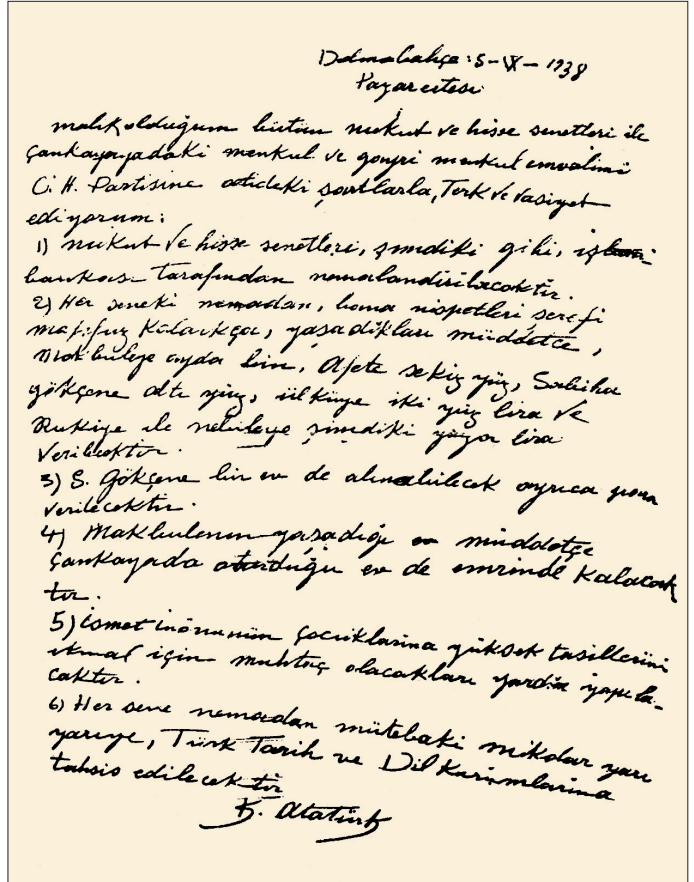 Dolmabahçe: 5-IX-1938
Pazarertesi
malik olduğum bütün nukut ve hisse senetleri ile
Çankayayadaki menkul ve gayri menkul emvalimi
C. H. Partisine atideki şartlarla, Terk ve vasiyet
ediyorum:
1) nukut ve hisse senetleri, şimdiki gibi, iş
bankası tarafından nemalandırılacaktır.
2) Her seneki nemadan, bana nispetleri şerefi
mahfuz kaldıkça, yaşadıkları müddetce,
Makbuleye ayda bin, Afete sekiz yüz, Sabiha
gökçene altı yüz, ülküye iki yüz lira ve
Rukiye ile nebileye şimdiki yüzer lira
verilecektir.
3) S. Gökçene bir ev de alınabilecek ayrıca para
verilecektir.
4) Makbulenin yaşadığı müddetçe
Çankayada oturduğu ev de emrinde kalacak
tır.
5) ismet inönünün çocuklarına yüksek tasillerini
ikmal için muhtaç olacakları yardım yapıla-
caktır.
6) Her sene nemadan mütebaki mikdar yarı
yarıye, Türk Tarih ve Dil Kurumlarına
tahsis edilecektir
K. Atatürk